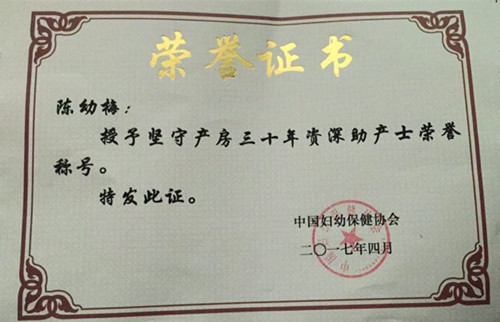 荣誉证书
陈幼梅：
授予坚守产房三十年资深助产士荣誉
称号。
特发此证。
中国妇幼保健协会
二〇一七年四月